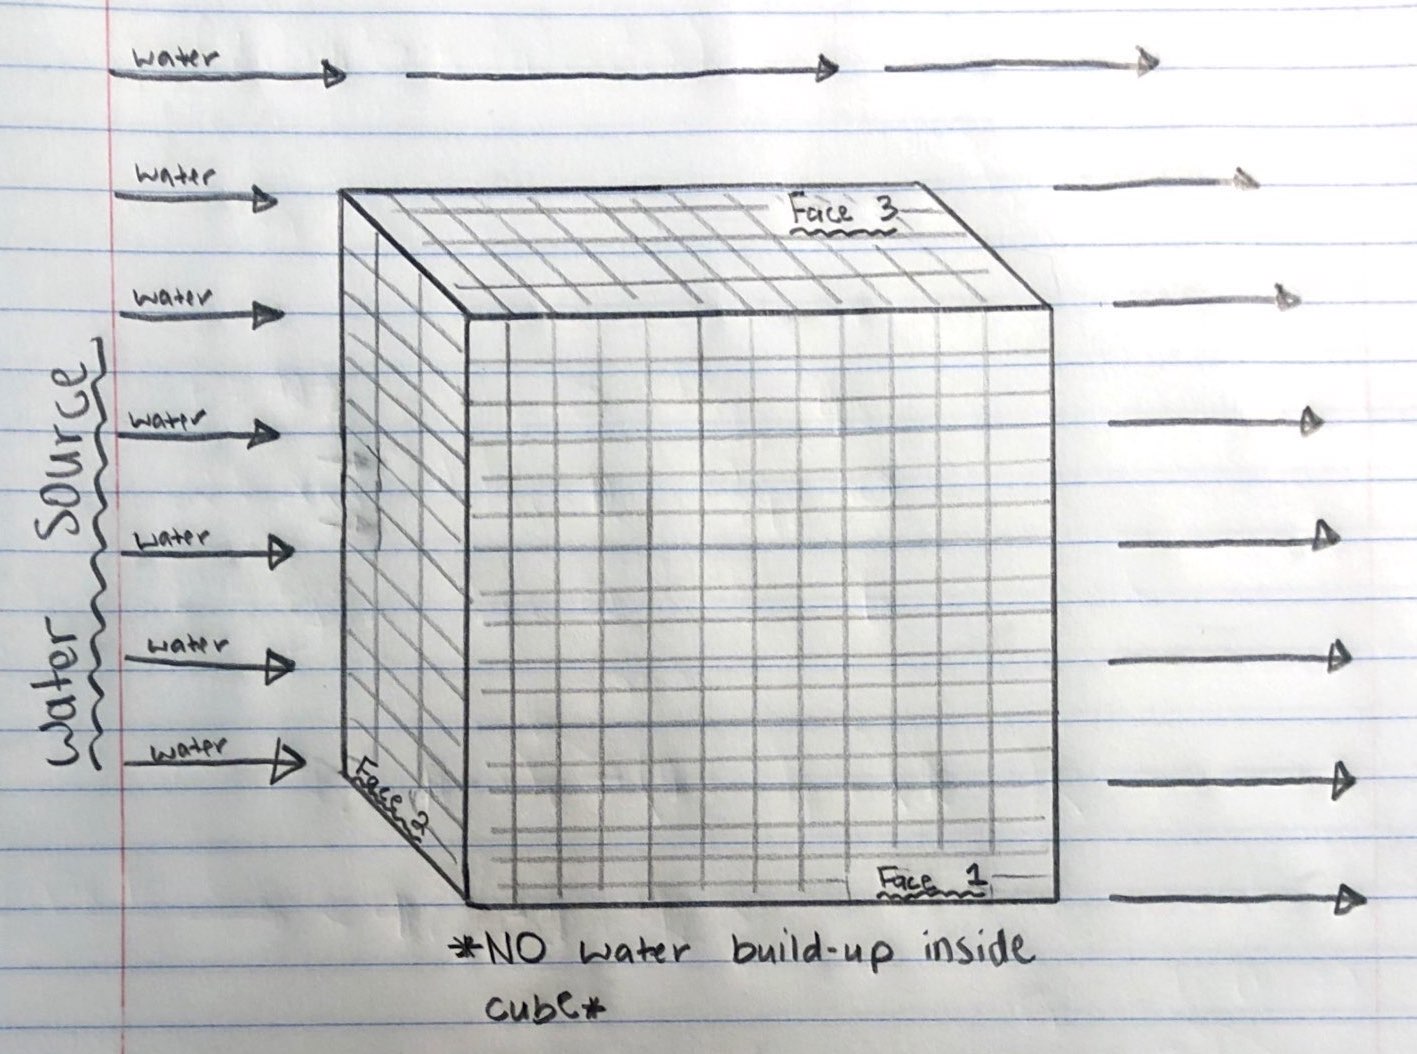 water
water
water
water
water
water
water
Water Source
Face 3
Face 2
Face 1
*NO water build-up inside
cube*